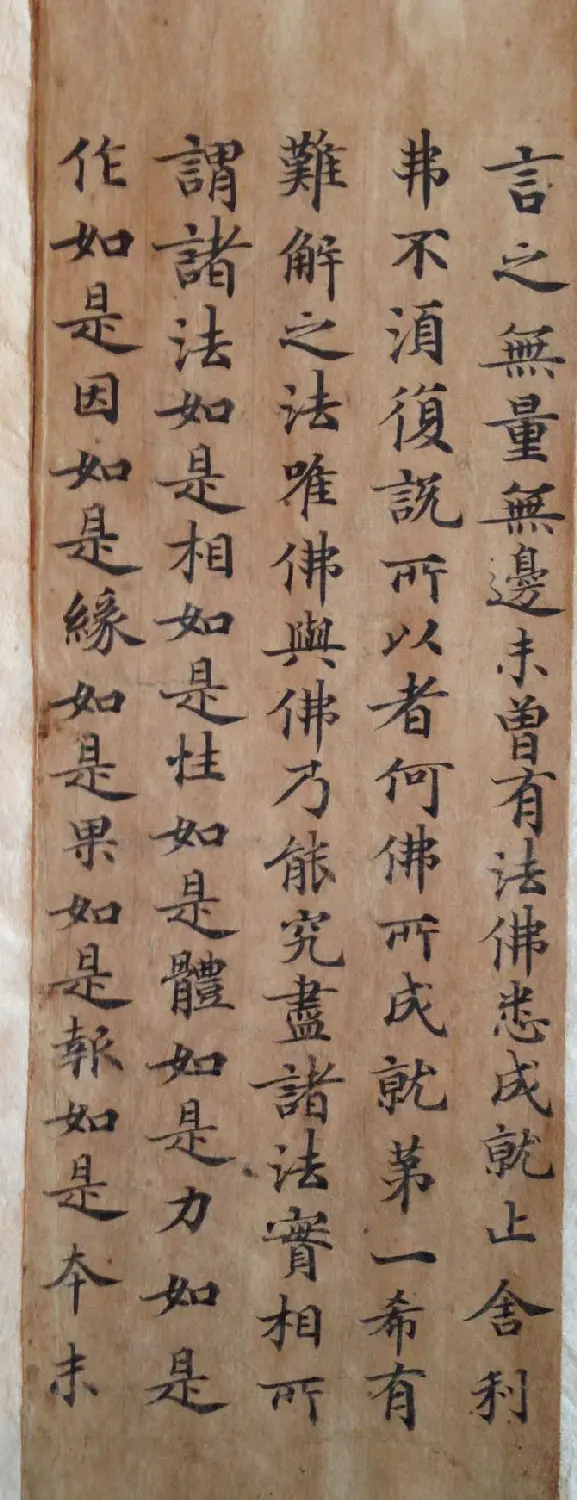 言之無量無邊未曾有法佛悉成就止舍利
弗不須復説所以者何佛所成就第一希有
難解之法唯佛與佛乃能究盡諸法實相所
謂諸法如是相如是性如是體如是力如是
作如是因如是緣如是果如是報如是本末